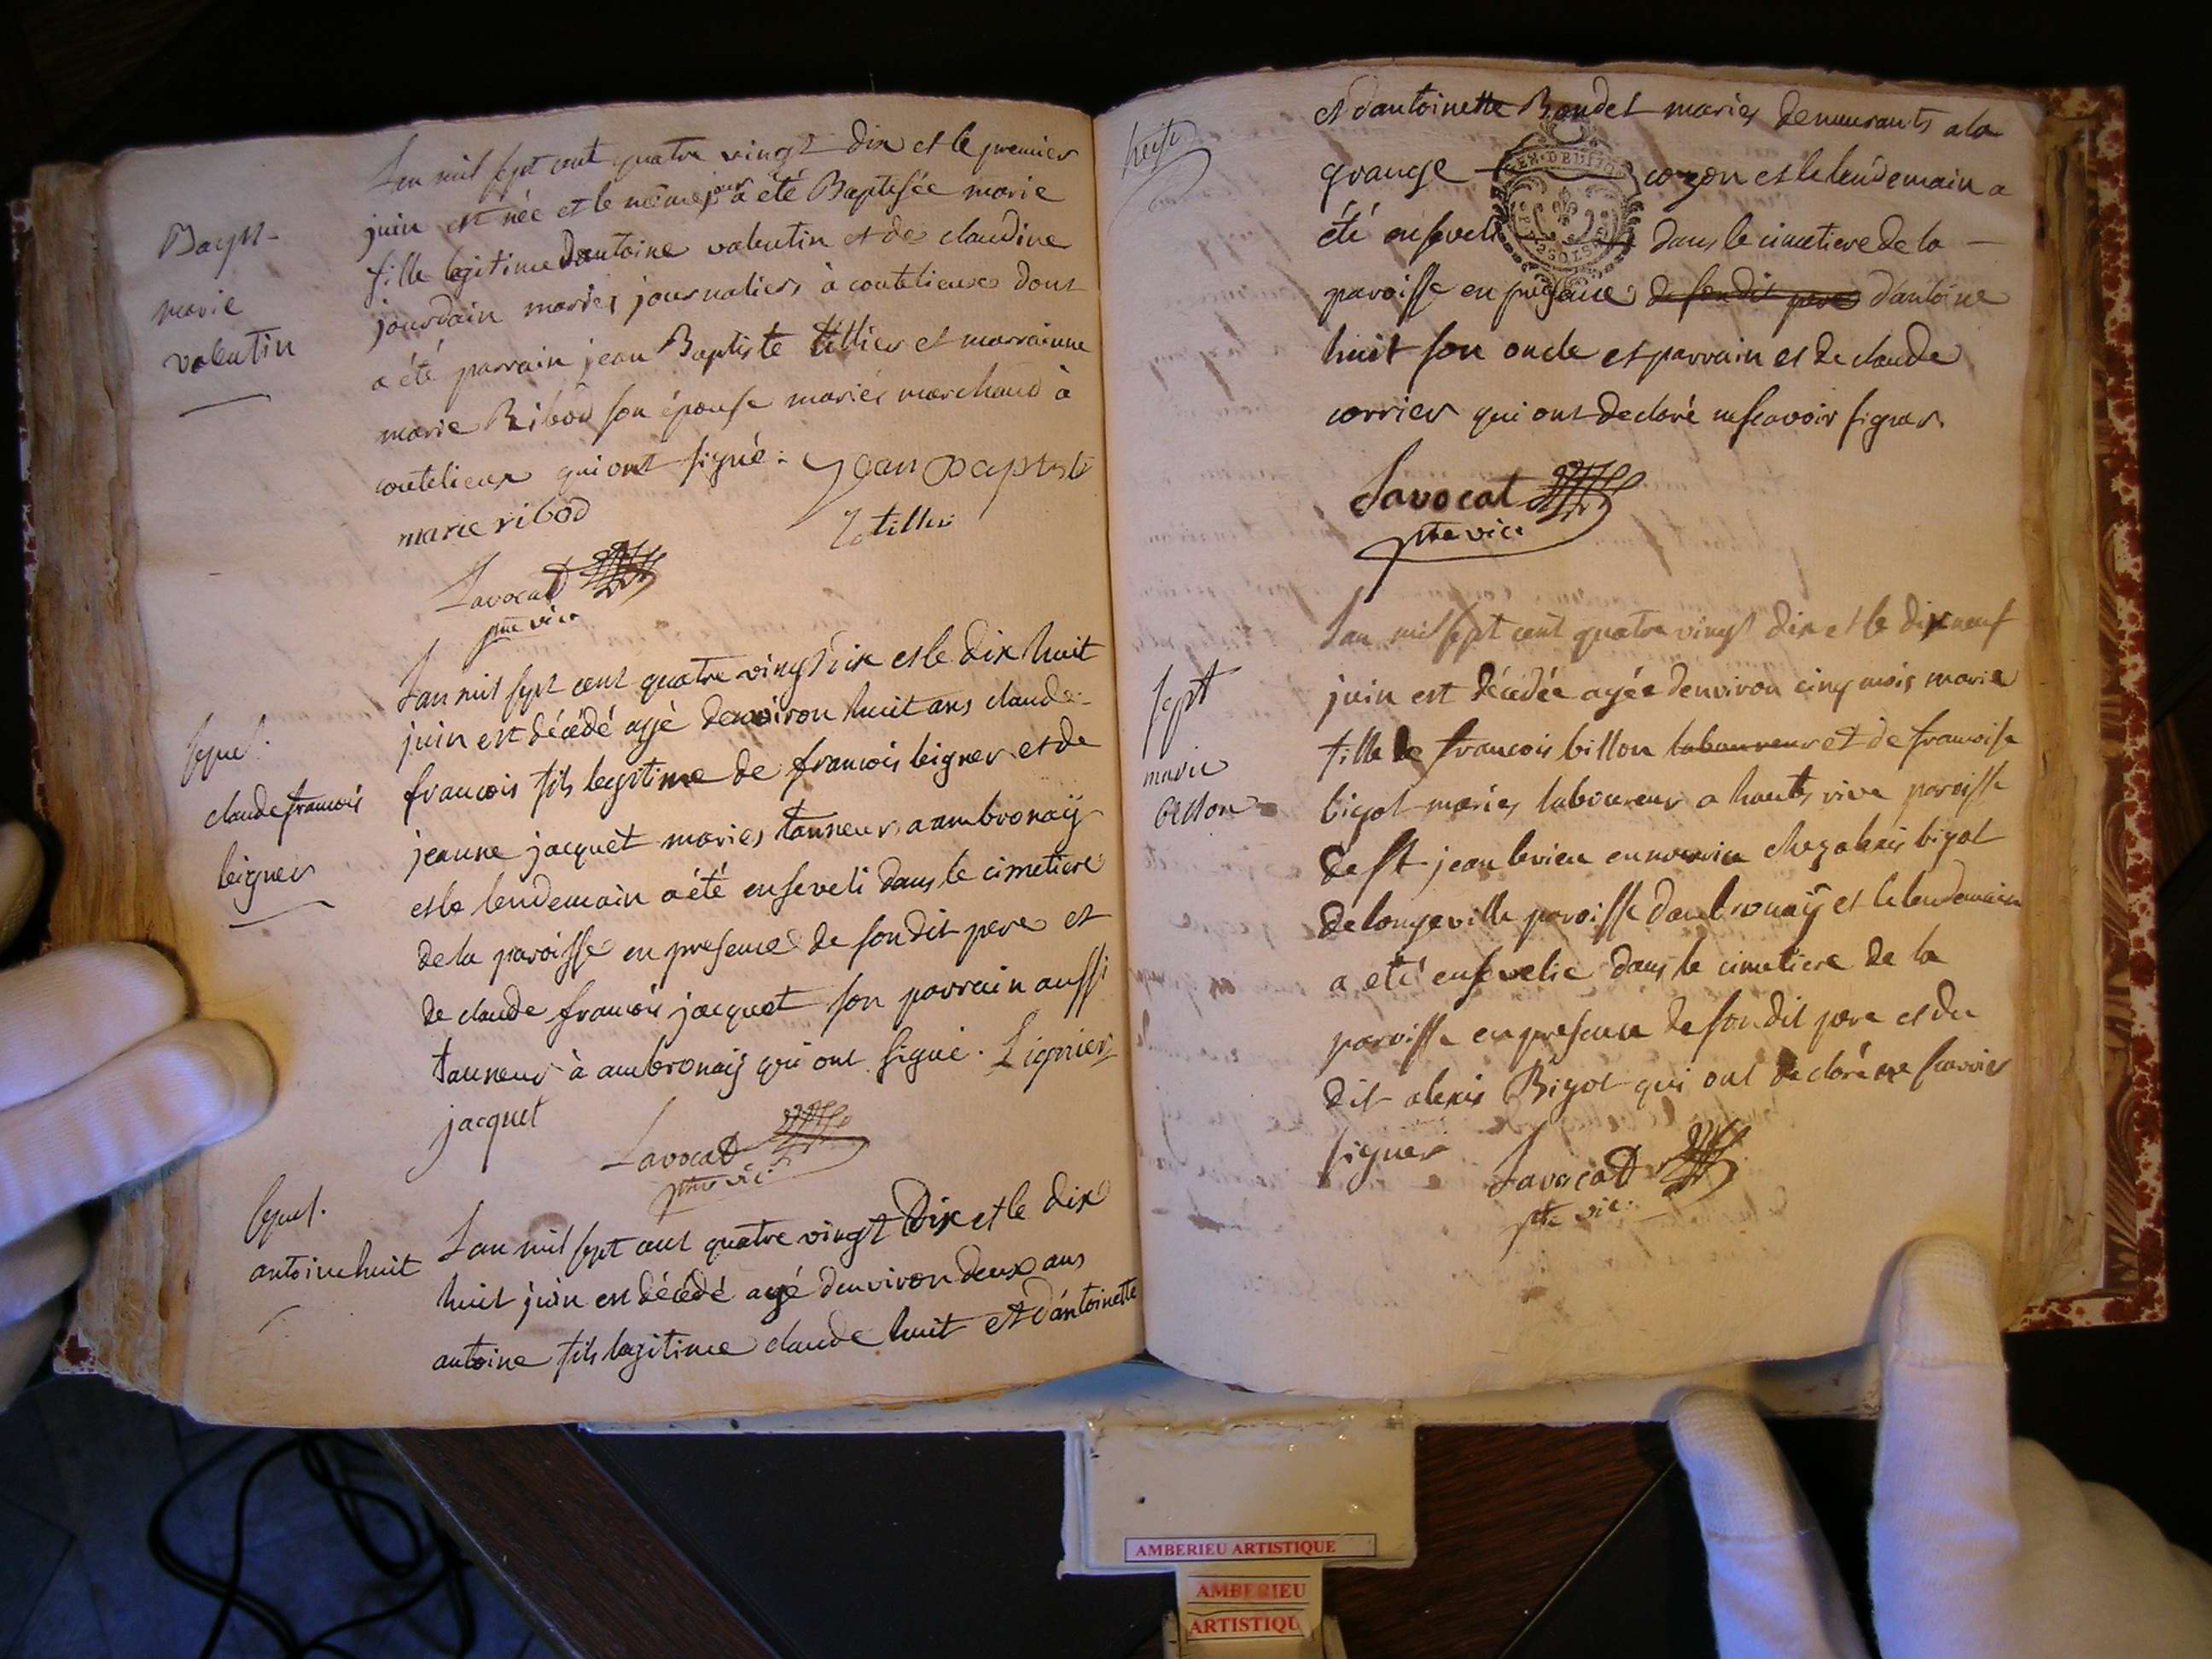 Bapt
marie
valentin
L'an mil sept cent quatre vingt dix et le premier
juin est née et le même jour a été Baptisée marie
fille legitime d'antoine valentin et de claudine
jourdain mariés journaliers à coutelieux dont
a été parrain jean Baptiste tillier et marrainne
marie Ribod son épouse mariés marchand à
coutelieux qui ont signé. jean Baptiste
marie ribod tillier
Lavocat
ptre vic.
sepul.
claude francois
leigner
L'an mil sept cent quatre vingt dix et le dix huit
juin est décédé agé denviron huit ans claude
francois fils legitime de francois leigner et de
jeanne jacquet mariés tanneurs a ambronaÿ
et le lendemain a été enseveli dans le cimetiere
de la paroisse en presence de son dit pere et
de claude francois jacquet son parrain aussi
tanneur à ambronaÿ qui ont signé. Lignier
jacquet
Lavocat
ptre vic.
sepul.
antoine huit
L'an mil sept cent quatre vingt Dix et le dix
huit juin est décédé agé denviron deux ans
antoine fils legitime claude huit et d'antoinette
huit
et d'antoinette Bondet mariés demeurants a la
grange cozon et le lendemain a
été enseveli dans le cimetiere de la
paroisse en presence de son dit pere d'antoine
huit son oncle et parrain et de claude
corrier qui ont declaré ne scavoir signer.
Lavocat
ptre vic.
sept
marie
billon
L'an mil sept cent quatre vingt dix et le dix neuf
juin est décédée agée denviron cinq mois marie
fille de francois billon laboureur et de francoise
bigot mariés laboureur a haute rive paroisse
de st jean le vieu en nourrice chez alexis bigot
de longeville paroisse d'ambronaÿ et le lendemain
a eté ensevelie dans le cimetiere de la
paroisse en presence de son dit pere et du
dit alexis Bigot qui ont declaré ne scavoir
signer
Lavocat
ptre vic.
AMBERIEU ARTISTIQUE
AMBERIEU
ARTISTIQU